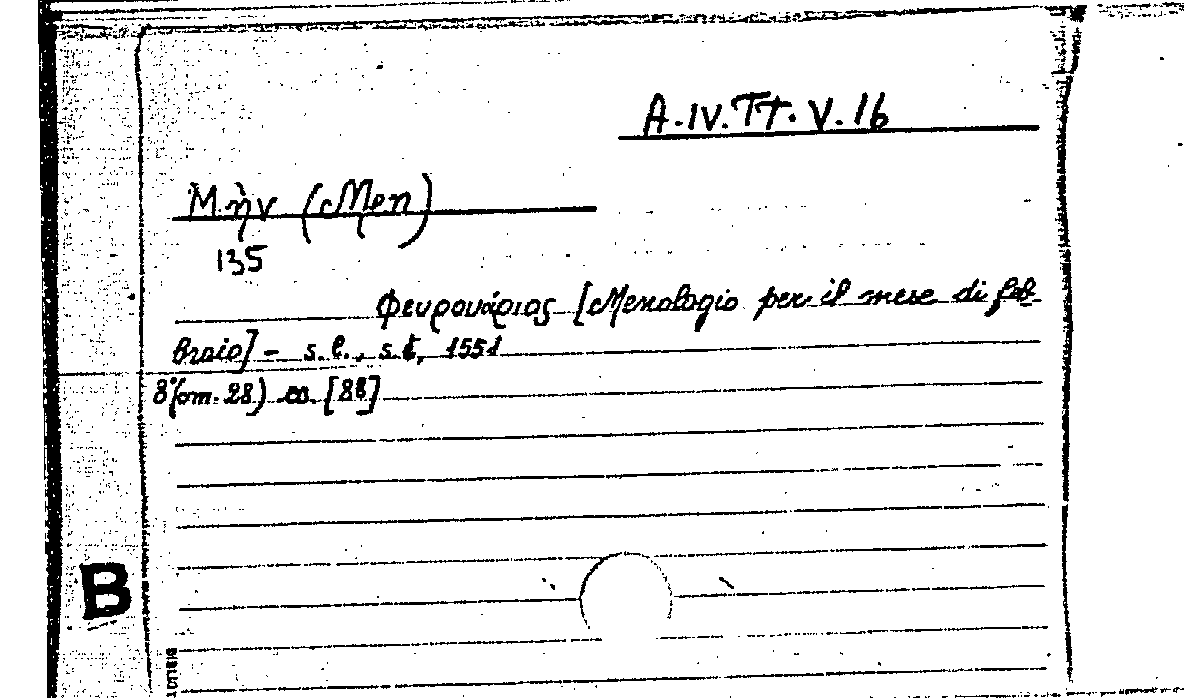 A.IV.TT.V.16
Μὴν (Men)
135
Φευρουάριος [Menologio per il mese di feb-
braio] - s.l., s.t, 1551
8°(cm. 28) cc. [88]
B